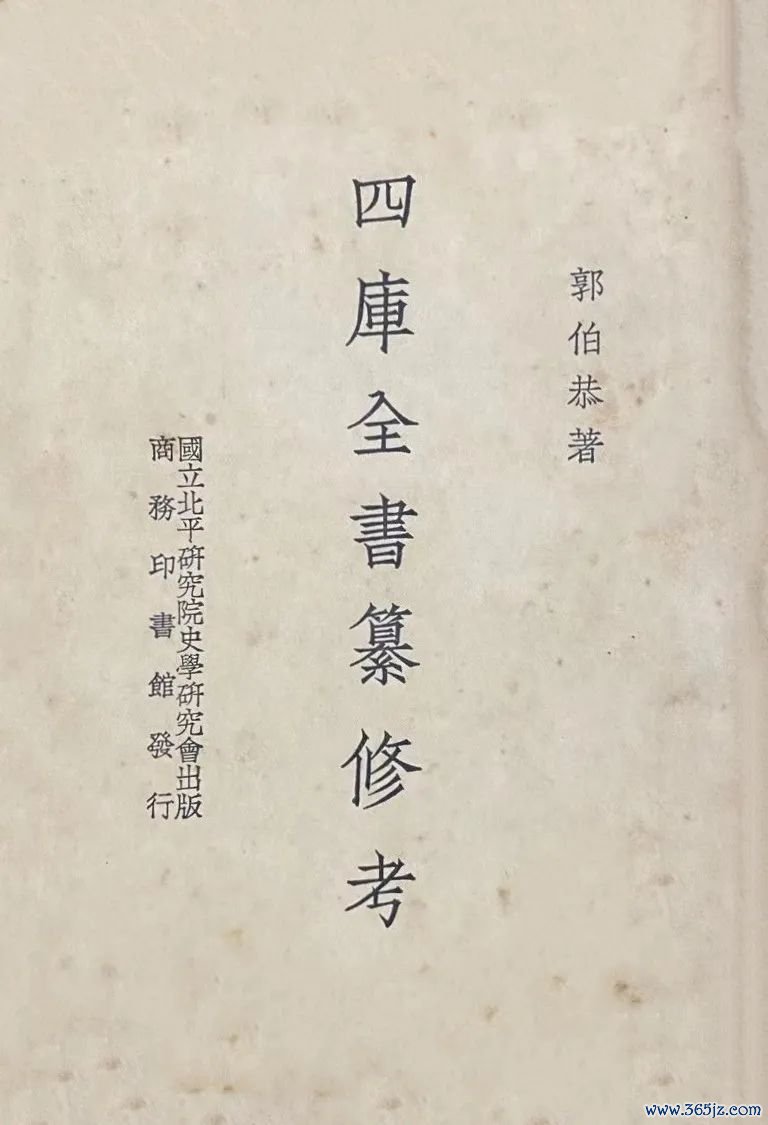 郭伯恭著
四庫全書纂修考
國立北平研究院史學研究會出版
商務印書館發行
www.365jz.com